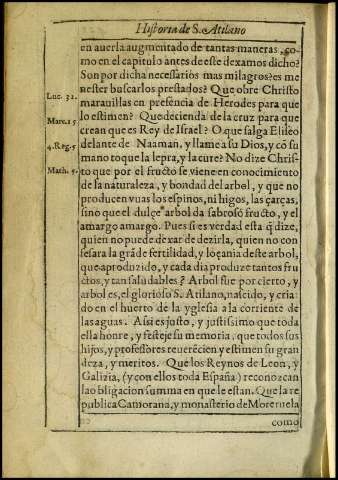 Historia de S. Atilano
en auerla augmentado de tantas maneras, co-
mo en el capitulo antes de este dexamos dicho?
Son por dicha necessarios mas milagros? es me
nester buscarlos prestados? Que obre Christo
Luc. 32.
marauillas en presẽcia de Herodes para que
lo estimen? Que decienda de la cruz para que
Marc. 15
crean que es Rey de Israel? O que salga Eliseo
4. Reg. 5
delante de Naaman, y llame a su Dios, y cõ su
mano toque la lepra, y la cure? No dize Chris-
Math. 5.
to que por el fructo se viene en conocimiento
de la naturaleza, y bondad del arbol, y que no
producen vuas los espinos, ni higos, las çarças,
sino que el dulçe arbol da sabroso fructo, y el
amargo amargo. Pues si es verdad esta q̃ dize,
quien no puede dexar de dezirla, quien no con
fesara la grãde fertilidad, y loçania deste arbol,
que a produzido, y cada dia produze tantos fru
ctos, y tan saludables? Arbol fue por cierto, y
arbol es, el glorioso S. Atilano, nascido, y cria-
do en el huerto de la yglesia a la corriente de
las aguas. Assi es justo, y justissimo que toda
ella honre, y festeje su memoria, que todos sus
hijos, y professores reuerẽcien y estimen su gran
deza, y meritos. Que los Reynos de Leon, y
Galizia, (y con ellos toda España) reconozcan
la obligacion summa en que le estan. Que la re
publica Çamorana, y monasterio de Moreruela
como